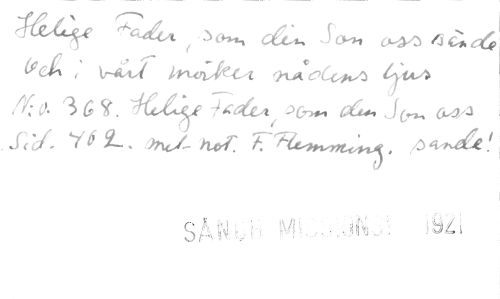 Helige Fader, som din Son oss sände
Och i vårt mörker nådens ljus
N:o. 368. Helige Fader, som den Son oss
Sid. 462. met not. F. Flemming. sände!
SÅNGER MISSIONS 1921